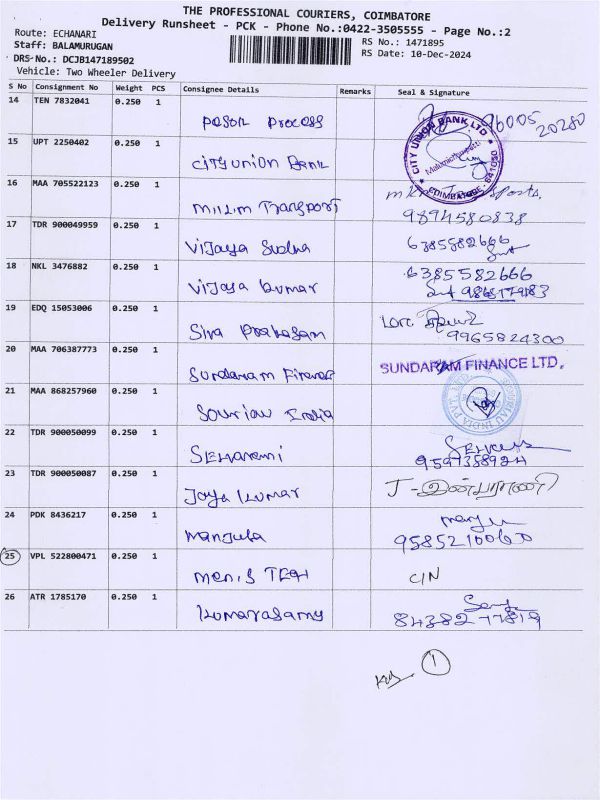 THE PROFESSIONAL COURIERS, COIMBATORE
Delivery Runsheet - PCK - Phone No.:0422-3505555 - Page No.:2
Route: ECHANARI
Staff: BALAMURUGAN
DRS No.: DCJB147189502
Vehicle: Two Wheeler Delivery
RS No.: 1471895
RS Date: 10-Dec-2024
S No Consignment No Weight PCS Consignee Details Remarks Seal & Signature
14 TEN 7832041 0.250 1 Process 96005 20280
15 UPT 2250402 0.250 1 City Union Bank CITY UNION BANK LTD COIMBATORE
16 MAA 705522123 0.250 1 Transport 9894580838
17 TDR 900049959 0.250 1 Vijaya Sudha 6385582666
18 NKL 3476882 0.250 1 Vijaya Kumar 6385582666
19 EDQ 15053006 0.250 1 Siva 9965824300
20 MAA 706387773 0.250 1 Sundaram Finance SUNDARAM FINANCE LTD.
21 MAA 868257960 0.250 1 Souriau India INDIA PVT.
22 TDR 900050099 0.250 1
23 TDR 900050087 0.250 1 Jaya Kumar J-இன்பராணி
24 PDK 8436217 0.250 1 Manjula 9585210060
25 VPL 522800471 0.250 1 TECH C/N
26 ATR 1785170 0.250 1 Kumarasamy 8438277819
1